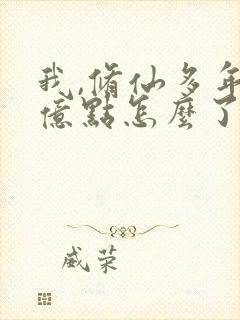 我,脩仙多年
億點怎麼了
威荣